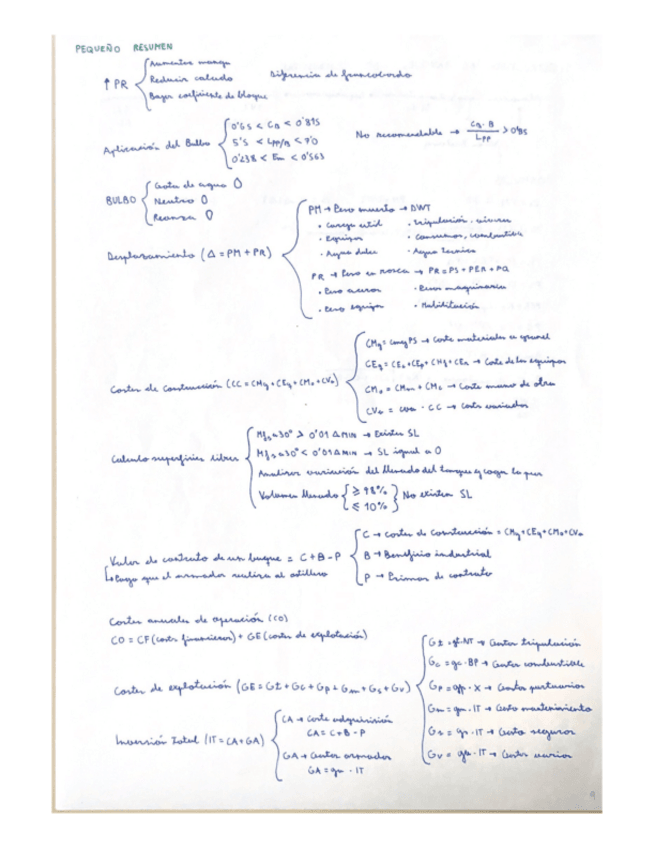 PEQUEÑO RESUMEN
↑ PR
Aumentar manga
Reducir calado
Bajar coeficiente de bloque
Diferencia de francobordo
Aplicación del Bulbo
0'65 < CB < 0'815
5'5 < LPP/B < 7'0
0'238 < Fn < 0'563
No recomendable → CB · B / LPP > 0'185
BULBO
Gota de agua
Neutro
Desplazamiento (Δ = PM + PR)
PM → Peso muerto → DWT
· Carga útil
· Tripulación, víveres
· Equipos
· Consumos, combustible
· Agua dulce
· Agua técnica
PR → Peso en rosca → PR = PS + PER + PQ
· Peso aceros
· Pesos maquinaria
· Peso equipo
· Habilitación
Costes de construcción (CC = CMg + CEq + CMo + CVa)
CMg = cmg PS → Coste materiales a granel
CEq = CEc + CEp + CHf + CEr → Coste de los equipos
CMo = CMm + CMs → Coste mano de obra
CVa = cva · CC → Coste variados
Calculo superficies libres
Mfs a 30° > 0'01 Δ MIN → Existen SL
Mfs a 30° < 0'01 Δ MIN → SL igual a 0
Analizar variación del llenado del tanque y coger la peor
Volumen llenado
≥ 98%
≤ 10%
No existen SL
Valor de contrato de un buque = C + B - P
↳ Pago que el armador realiza al astillero
C → costes de Construcción = CMg + CEq + CMo + CVa
B → Beneficio industrial
P → Primas de contrato
Costes anuales de operación (CO)
CO = CF (costes financieros) + GE (costes de explotación)
Costes de explotación (GE = Gt + Gc + Gp + Gm + Gs + Gv)
Gt = gt·NT → Gastos tripulación
Gc = gc · BP → Gastos combustible
Gp = gp · X → Gastos portuarios
Gm = gm · IT → Gasto mantenimiento
Gs = gs · IT → Gasto seguros
Gv = gv · IT → Gastos varios
Inversión Total (IT = CA + GA)
CA → Coste adquisición
CA = C + B - P
GA → Gastos armador
GA = ga · IT